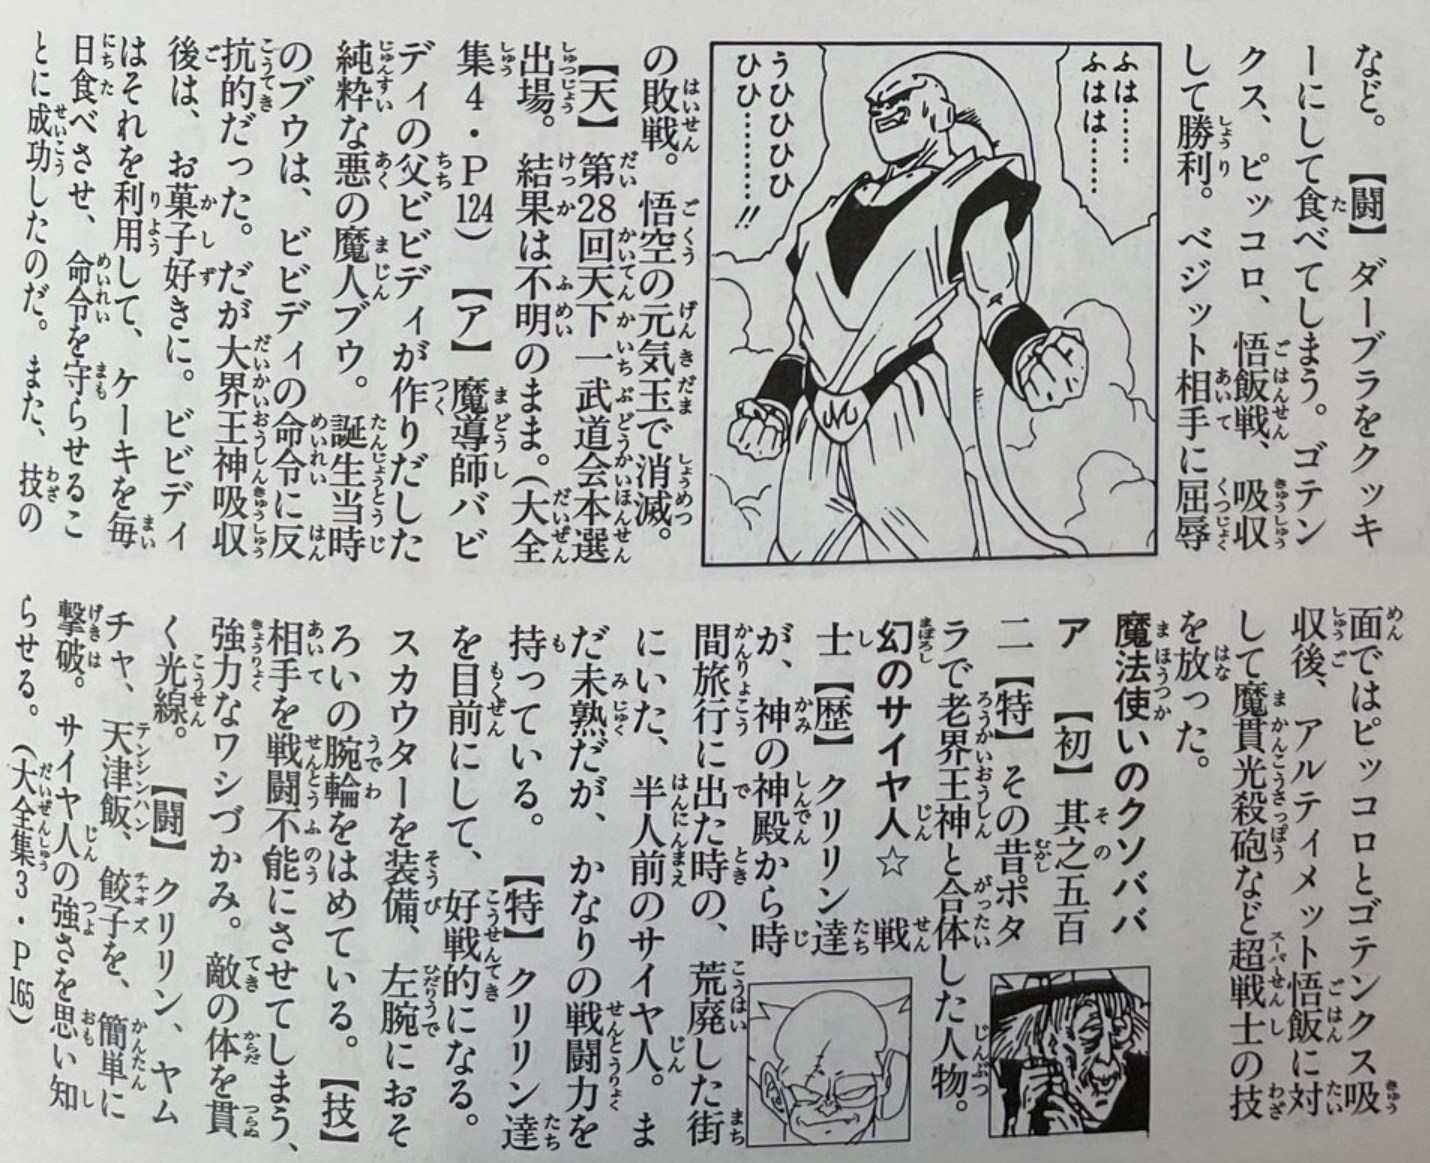 など。　【闘】ダーブラをクッキ
ーにして食べてしまう。ゴテン
クス、ピッコロ、悟飯戦、吸収
して勝利。ベジット相手に屈辱
ふは……
ふはは……
うひひひひ
ひひ………!!
の敗戦。悟空の元気玉で消滅。
【天】第28回天下一武道会本選
出場。結果は不明のまま。(大全
集4・P124)　【ア】魔導師バビ
ディの父ビビディが作りだした
純粋な悪の魔人ブウ。誕生当時
のブウは、ビビディの命令に反
抗的だった。だが大界王神吸収
後は、お菓子好きに。ビビディ
はそれを利用して、ケーキを毎
日食べさせ、命令を守らせるこ
とに成功したのだ。また、技の
面ではピッコロとゴテンクス吸
収後、アルティメット悟飯に対
して魔貫光殺砲など超戦士の技
を放った。
魔法使いのクソババ
ア　【初】其之五百
二【特】その昔ポタ
ラで老界王神と合体した人物。
幻のサイヤ人☆戦
士【歴】クリリン達
が、神の神殿から時
間旅行に出た時の、荒廃した街
にいた、半人前のサイヤ人。ま
だ未熟だが、かなりの戦闘力を
持っている。　【特】クリリン達
を目前にして、好戦的になる。
スカウターを装備、左腕におそ
ろいの腕輪をはめている。【技】
相手を戦闘不能にさせてしまう、
強力なワシづかみ。敵の体を貫
く光線。　【闘】クリリン、ヤム
チャ、天津飯、餃子を、簡単に
撃破。サイヤ人の強さを思い知
らせる。(大全集3・P165)